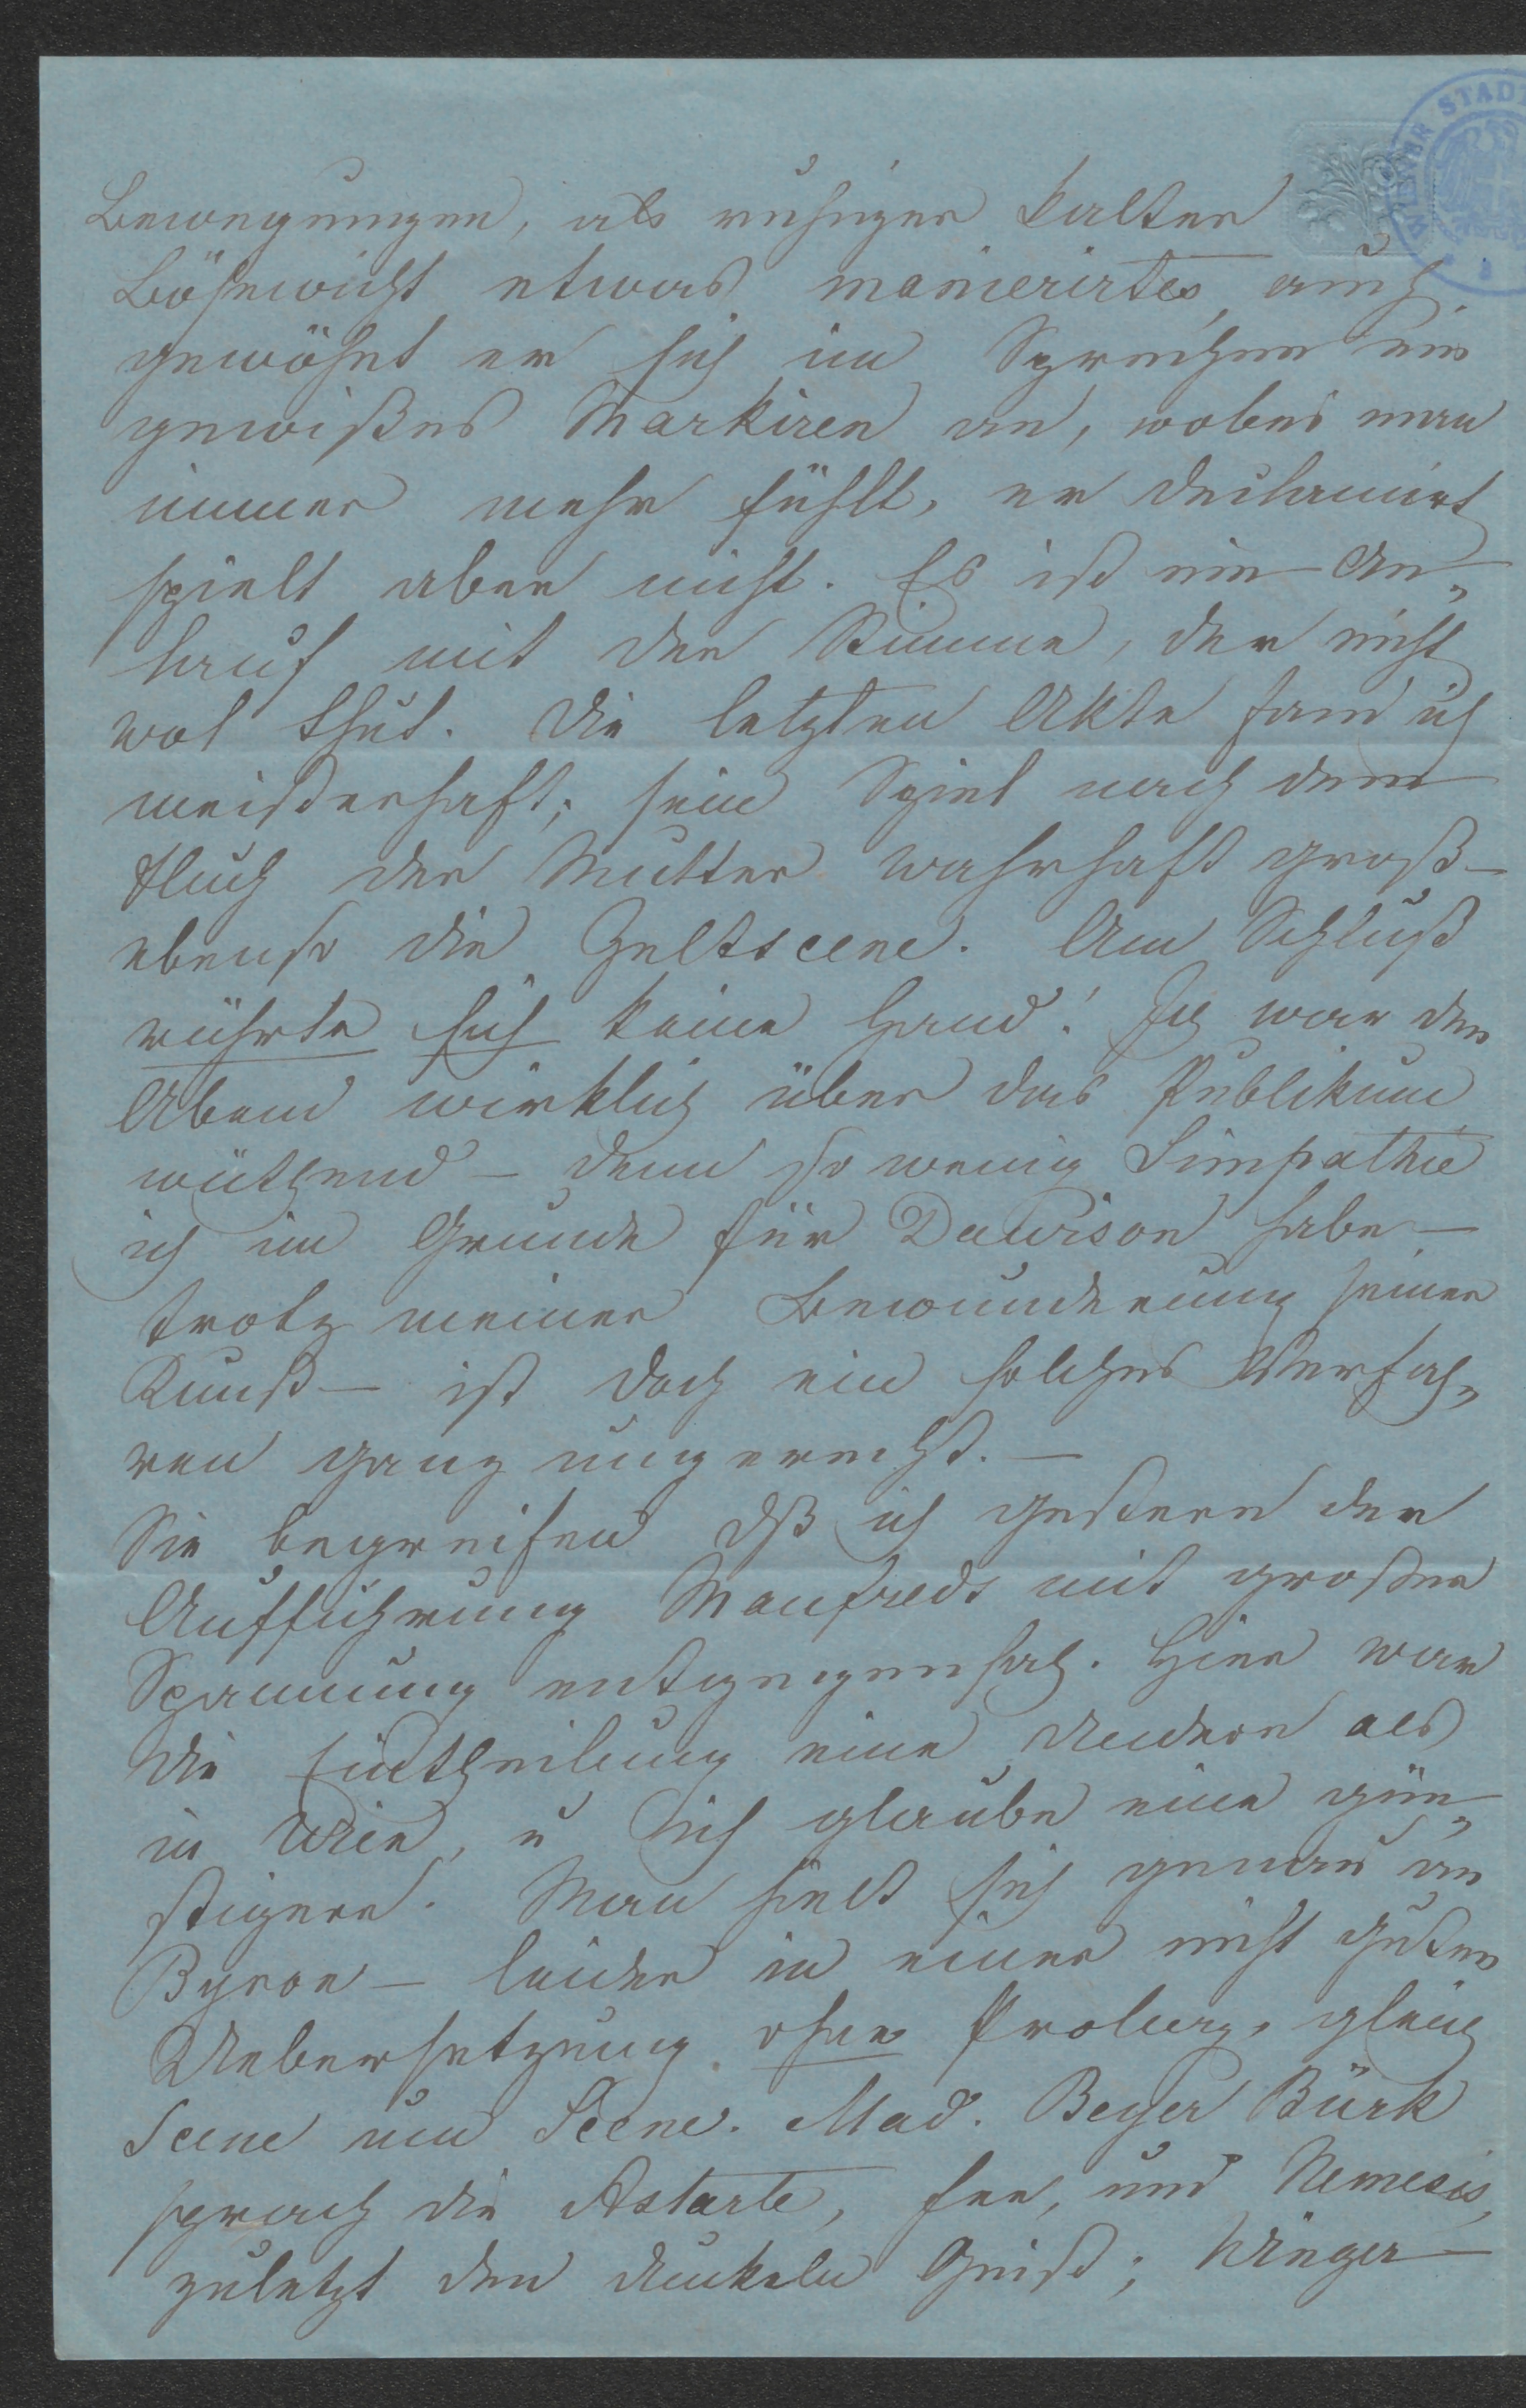 Bewegungen, als ruhiger kalter
Bösewicht etwas manierirtes, auch
gewöhnt er sich im Sprechen ein
gewißes Markiren an, wobei man
immer mehr fühlt, er declamirt
spielt aber nicht. Es ist ein An„
lauf mit der Stimme, der nicht
wol thut. Die letzten Akte fand ich
meisterhaft; sein Spiel nach dem
Fluch der Mutter wahrhaft groß –
ebenso die Zeltscene. Am Schluß
rührte sich keine Hand! Ich war den
Abend wirklich über das Publikum
wüthend – denn so wenig Simpathie
ich im Grunde für Dawison habe –
trotz meiner Bewunderung seiner
Kunst – ist doch ein solches Verfah„
ren ganz ungerecht. –
Sie begreifen dß ich gestern der
Aufführung Manfreds mit großer
Spannung entgegensah. Hier war
die Eintheilung eine andere als
in Wien, u ich glaube eine gün„
stigere. Man hielt sich genau an
Byron – leider in einer nicht guten
Uebersetzung ohne Prolog, gleich
Scene um Scene. Mad. Beyer Bürk
sprach die Astarte, Fee, und Nemesis,
zuletzt den dunkeln Geist; Winger
WIENER STADT